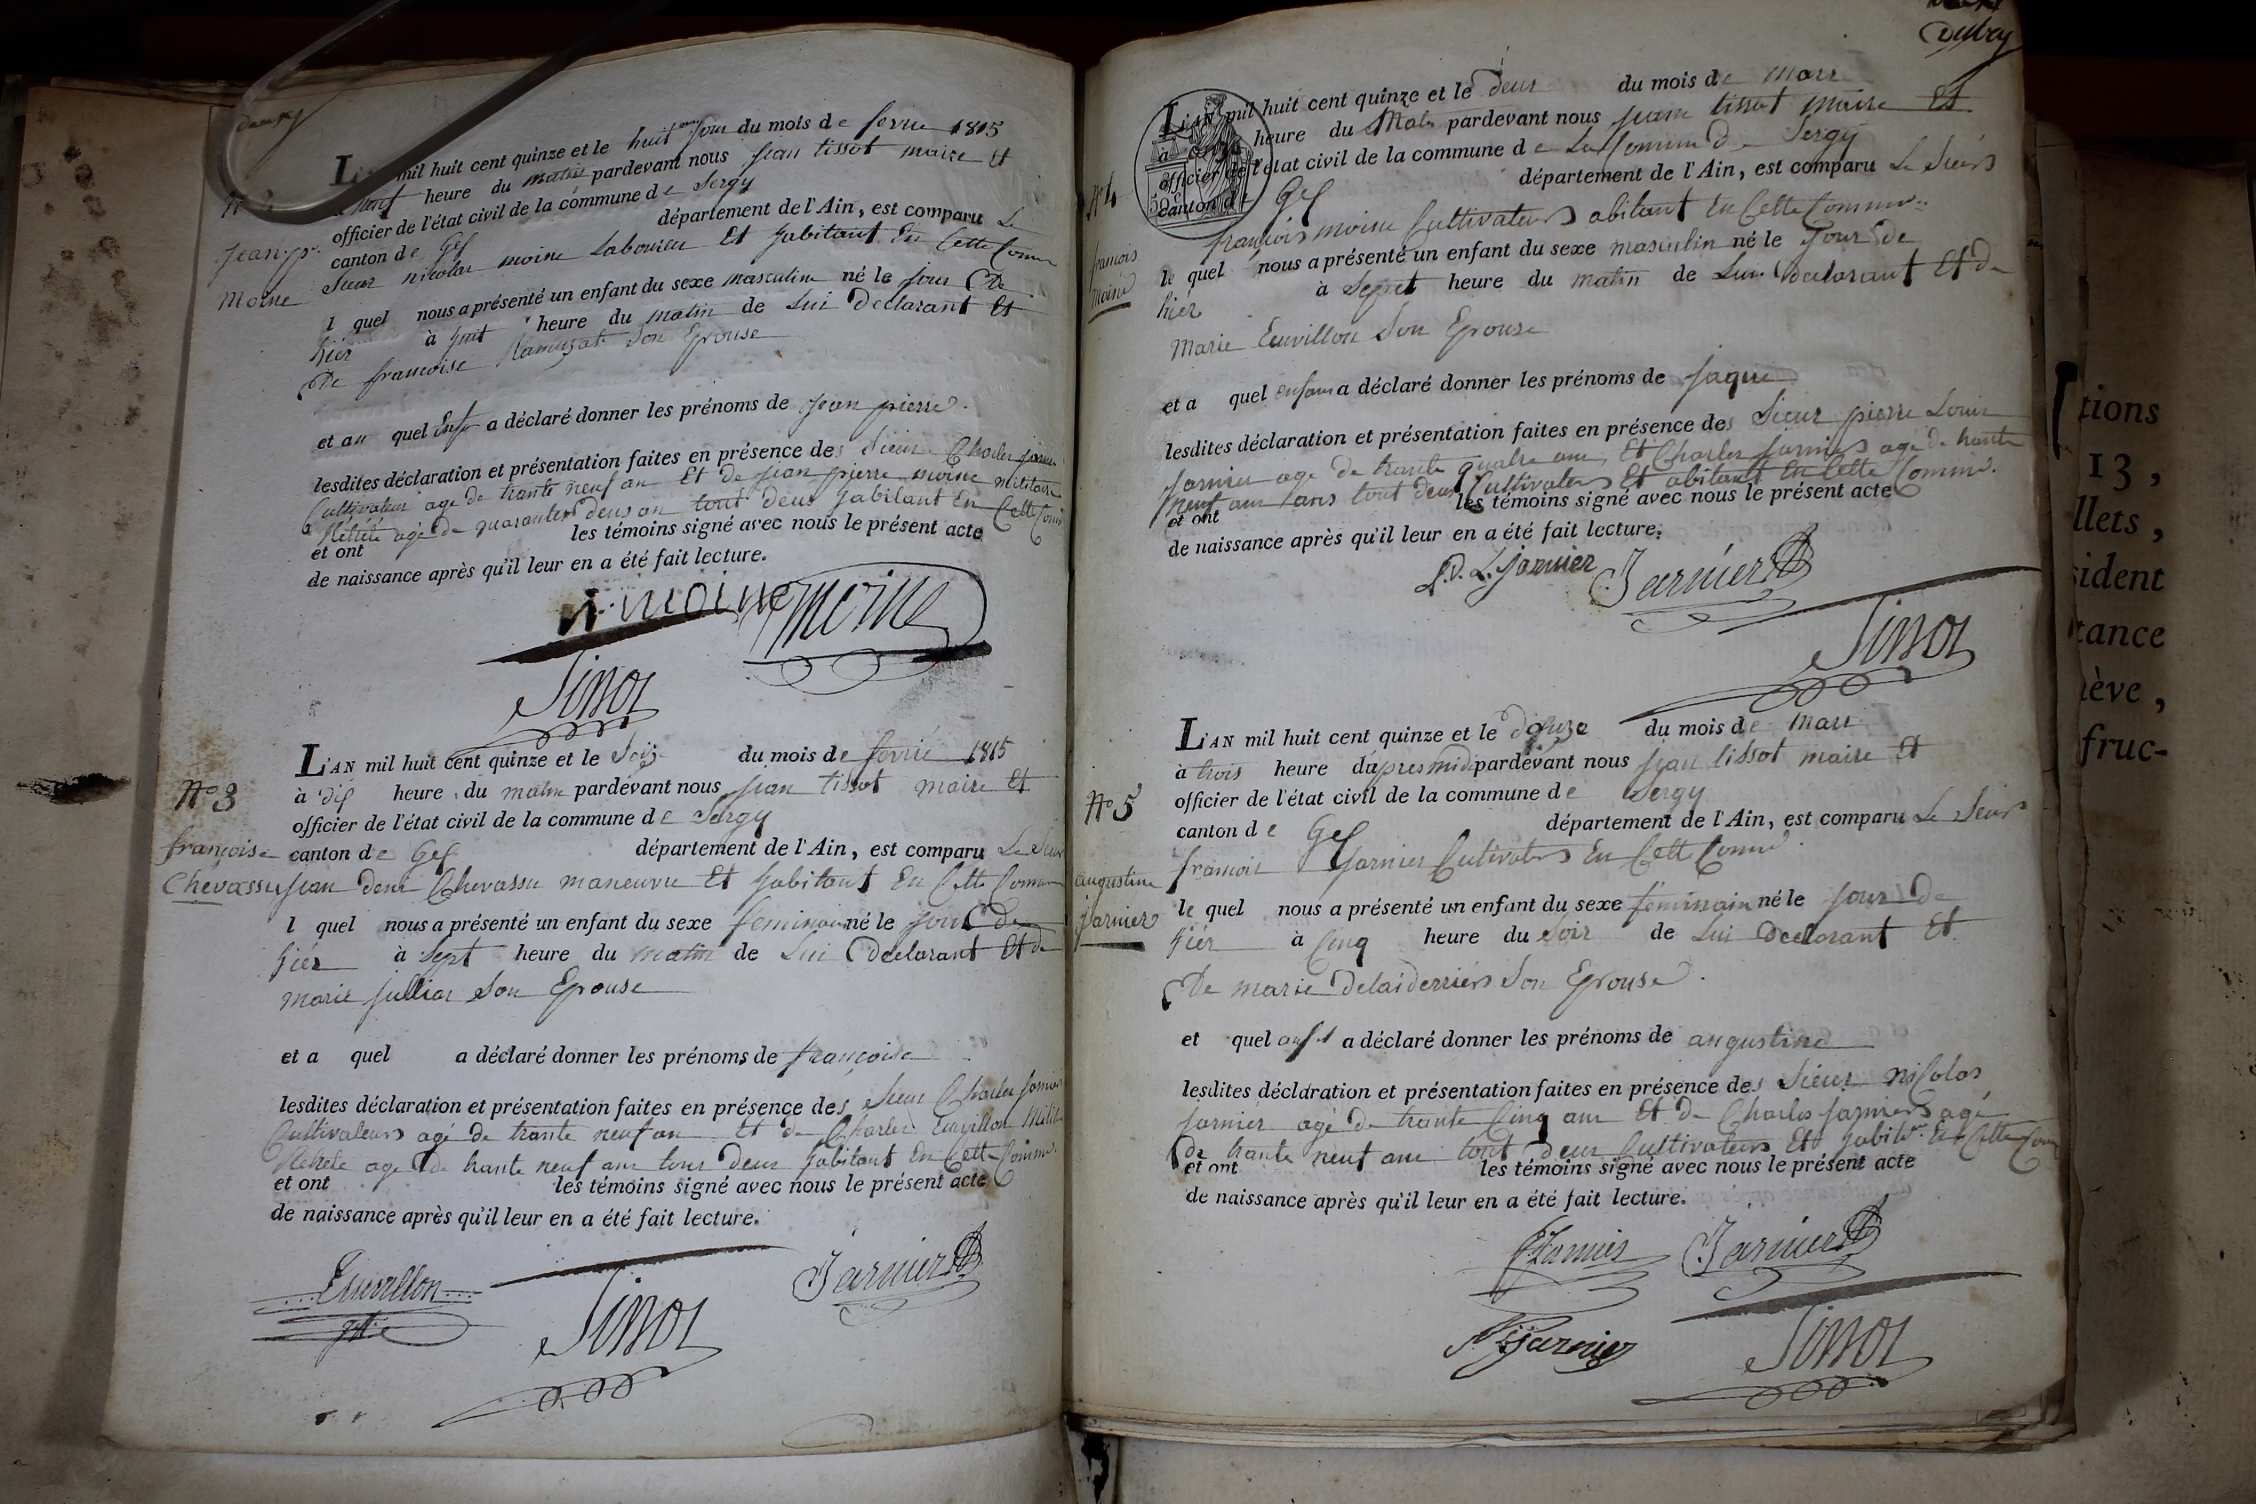 deux
L'AN mil huit cent quinze et le huit jour du mois de fevrie 1815
à neuf heure du matin pardevant nous jean tissot maire et
officier de l'état civil de la commune de Sergy
canton de Gex département de l'Ain, est comparu Le
Jean pr.
Moine
Sieur nikolas moine Laboureu Et habitant En Cette Comu
l quel nous a présenté un enfant du sexe masculin né le jour De
hiér à huit heure du matin de Lui Declarant Et
De francoise Ramuzat Son Epouse
et au quel Enf a déclaré donner les prénoms de jean pierre
lesdites déclaration et présentation faites en présence des Sieur Charles jarnier
Cultivateur agé de trante neuf an Et de jean pierre moine militaire
agé de quarante deus an tout deus habitant En Cette Comu
et ont les témoins signé avec nous le présent acte
de naissance après qu'il leur en a été fait lecture.
moine moine
Tissot
N° 3
françoise
Chevassu
L'AN mil huit cent quinze et le Seiz du mois de fevrié 1815
à dix heure du matin pardevant nous jean tissot maire et
officier de l'état civil de la commune de Sergy
canton de Gex département de l'Ain, est comparu Le Sieur
jean deni Chevassu maneuvre Et habitant En Cette Comun
l quel nous a présenté un enfant du sexe feminain né le jour De
hiér à sept heure du matin de Lui Declarant Et de
marie jullian Son Epouse
et a quel a déclaré donner les prénoms de françoise
lesdites déclaration et présentation faites en présence des Sieur Charles jarnier
Cultivateurs agé de trante neuf an Et de Charles Euvillon Milit
agé de trante neuf ans tous deux habitant En Cette Commu.
et ont les témoins signé avec nous le présent acte
de naissance après qu'il leur en a été fait lecture.
Euvrillon Jarnier
Tissot
N° 4
francois
moine
L'AN mil huit cent quinze et le deus du mois de Mars
à heure du Matin pardevant nous jean tissot maire Et
officier de l'état civil de la commune de La Commun De Sergy
canton d Gex département de l'Ain, est comparu Le Sieurs
françois moine Cultivateurs abitant En Cette Commu
le quel nous a présenté un enfant du sexe masculin né le jour de
hiér à Sepet heure du matin de Lui declarant Et de
Marie Euvillon Son Epouse
et a quel enfant a déclaré donner les prénoms de jaque
lesdites déclaration et présentation faites en présence des Sieur pierre Louis
jarnier age de trante quatre ans, Et Charles jarniers age de trante
neuf ans tout deux Cultivateurs Et abitant En Cette Commu.
et ont les témoins signé avec nous le présent acte
de naissance après qu'il leur en a été fait lecture.
P. L. jarnier Jarnier
Tissot
N° 5
augustine
jarnier
L'AN mil huit cent quinze et le douze du mois de Mars
à trois heure dapresmidi pardevant nous jean tissot maire Et
officier de l'état civil de la commune de Sergy
canton de Gex département de l'Ain, est comparu Le Sieur
francoir jarnier Cultivateurs En Cette Commu
le quel nous a présenté un enfant du sexe féminain né le jour De
hiér à Cinq heure du Soir de Lui declarant Et
De marie Delaiderriérs Son Epouse
et quel a déclaré donner les prénoms de augustine
lesdites déclaration et présentation faites en présence des Sieur niColas
jarniér agé de trante Cinq ans Et de Charles jarniers agé
de trante neuf ans tout deux Cultivateurs Et habitan En Cette Com
et ont les témoins signé avec nous le présent acte
de naissance après qu'il leur en a été fait lecture.
Jarnier Jarnier
N jarnier Tissot
tions
13,
llets,
sident
tance
nève,
fruc-